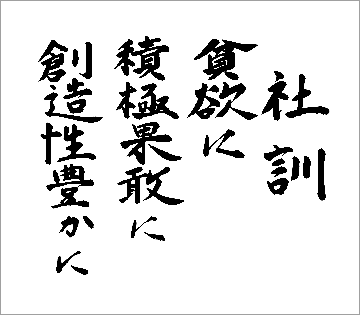 社訓
貪欲に
積極果敢に
創造性豊かに